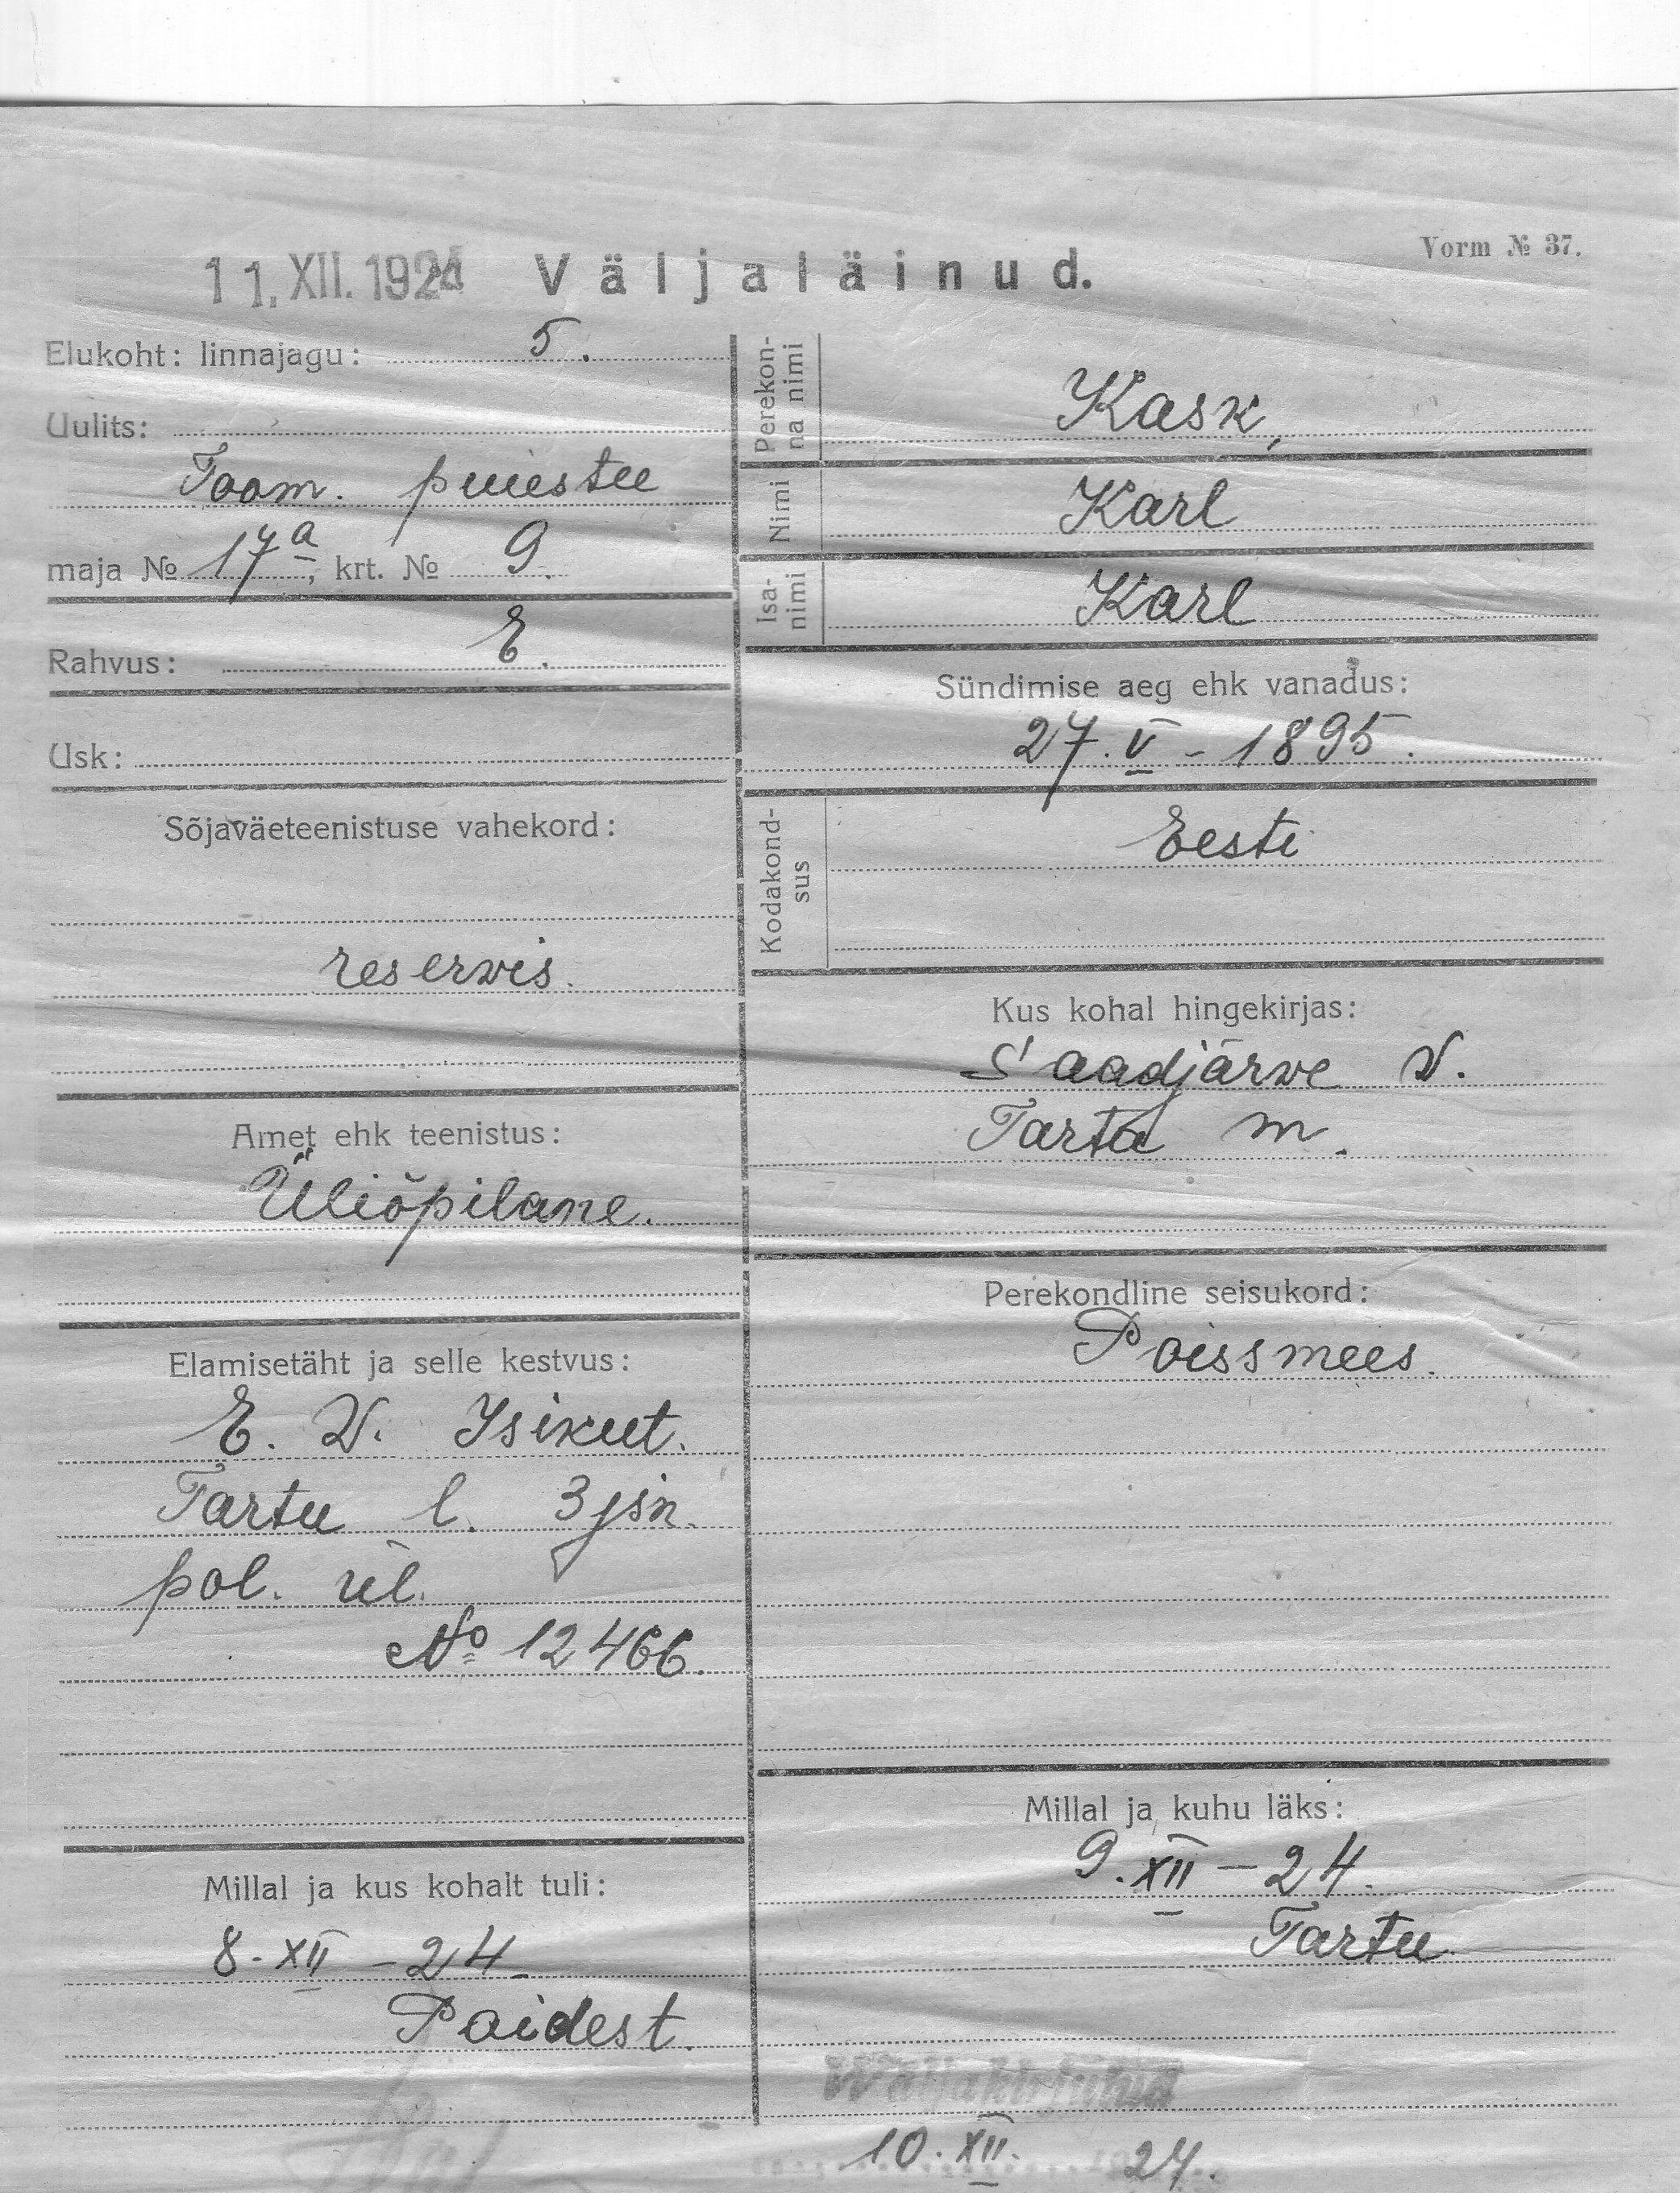 Vorm № 37.
11. XII. 1924 Väljaläinud.
Elukoht: linnajagu: 5.
Uulits:
Toom. puiestee
maja № 17a, krt. № 9.
Rahvus: E.
Usk:
Sõjaväeteenistuse vahekord:
reservis.
Amet ehk teenistus:
Üliõpilane.
Elamisetäht ja selle kestvus:
E. V. Isikut.
Tartu l. 3 jsk.
pol. ül.
№ 12466.
Millal ja kus kohalt tuli:
8-XII-24.
Paidest.
Perekon-
na nimi
Kask,
Nimi
Karl
Isa-
nimi
Karl
Sündimise aeg ehk vanadus:
27.V-1895.
Kodakond-
sus
Eesti
Kus kohal hingekirjas:
Saadjärve V.
Tartu m.
Perekondline seisukord:
Poissmees.
Millal ja kuhu läks:
9.XII-24.
Tartu
Väljakirjutud
10.XII. 24.